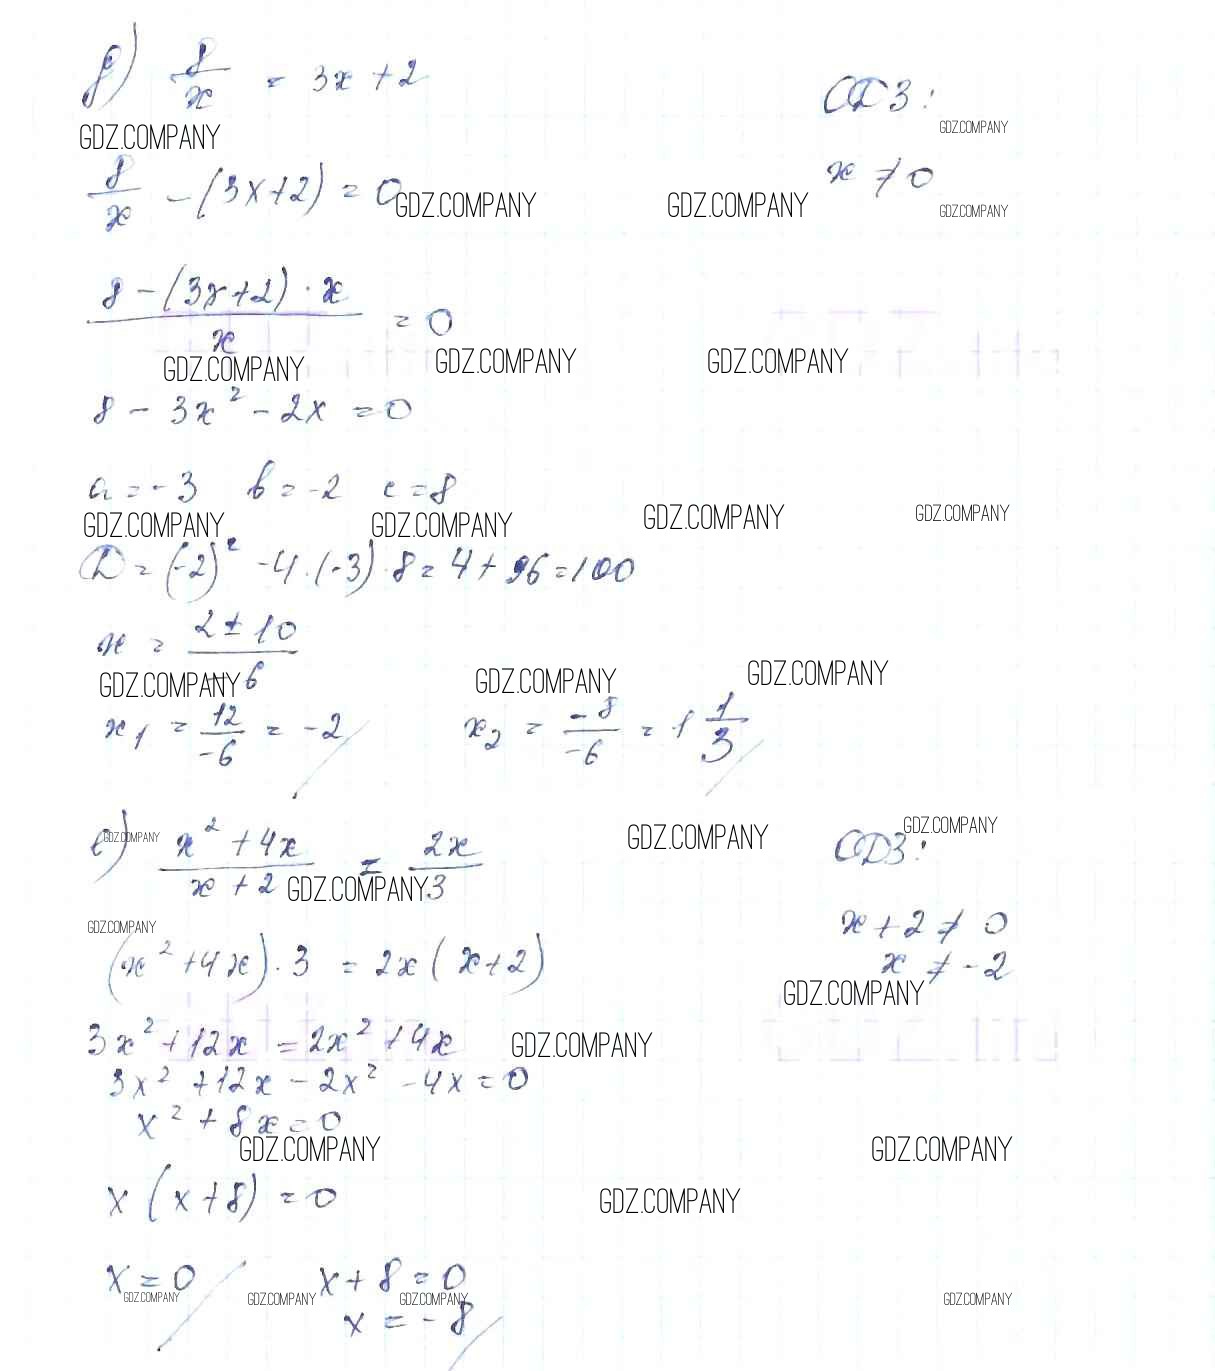 д) 8/x = 3x + 2
ОДЗ:
GDZ.COMPANY GDZ.COMPANY
8/x - (3x+2) = 0
x ≠ 0
GDZ.COMPANY GDZ.COMPANY GDZ.COMPANY
(8 - (3x+2) · x)/x = 0
GDZ.COMPANY GDZ.COMPANY GDZ.COMPANY
8 - 3x² - 2x = 0
a = -3 b = -2 c = 8
GDZ.COMPANY GDZ.COMPANY GDZ.COMPANY GDZ.COMPANY
D = (-2)² - 4·(-3)·8 = 4 + 96 = 100
x = (2 ± 10)/-6
GDZ.COMPANY GDZ.COMPANY GDZ.COMPANY
x₁ = 12/-6 = -2 x₂ = -8/-6 = 1 1/3
е) (x² + 4x)/(x + 2) = 2x/3
ОДЗ:
GDZ.COMPANY GDZ.COMPANY GDZ.COMPANY GDZ.COMPANY
x + 2 ≠ 0
GDZ.COMPANY
(x² + 4x) · 3 = 2x(x+2)
x ≠ -2
GDZ.COMPANY
3x² + 12x = 2x² + 4x
GDZ.COMPANY
3x² + 12x - 2x² - 4x = 0
x² + 8x = 0
GDZ.COMPANY GDZ.COMPANY
x(x+8) = 0
GDZ.COMPANY
x = 0 x + 8 = 0
GDZ.COMPANY GDZ.COMPANY GDZ.COMPANY GDZ.COMPANY
x = -8